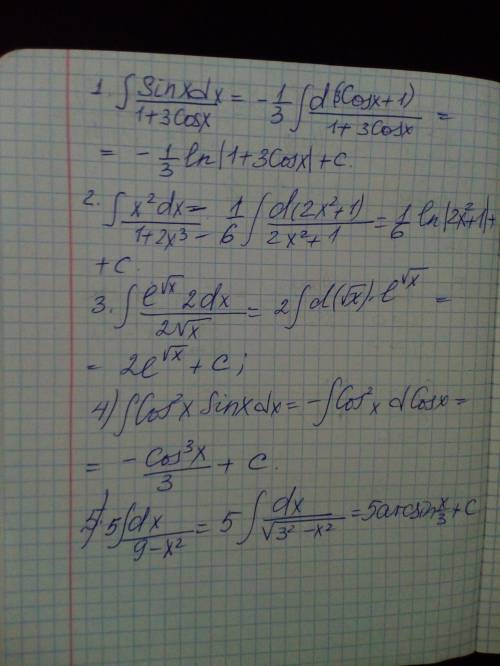 1. ∫ sinxdx/1+3Cosx = -1/3 ∫ d(3Cosx+1)/1+3Cosx =
= -1/3 ln|1+3Cosx|+C.
2. ∫ x²dx/1+2x³ = 1/6 ∫ d(2x²+1)/2x²+1 = 1/6 ln|2x²+1|+
+C.
3. ∫ e^√x 2dx/2√x = 2∫d(√x)·e^√x =
= 2e^√x + C;
4) ∫Cos²x Sinxdx = -∫Cos²x dCosx =
= -Cos³x/3 + C.
5) 5∫dx/9-x² = 5 ∫ dx/√3²-x² = 5arcsin x/3 + C